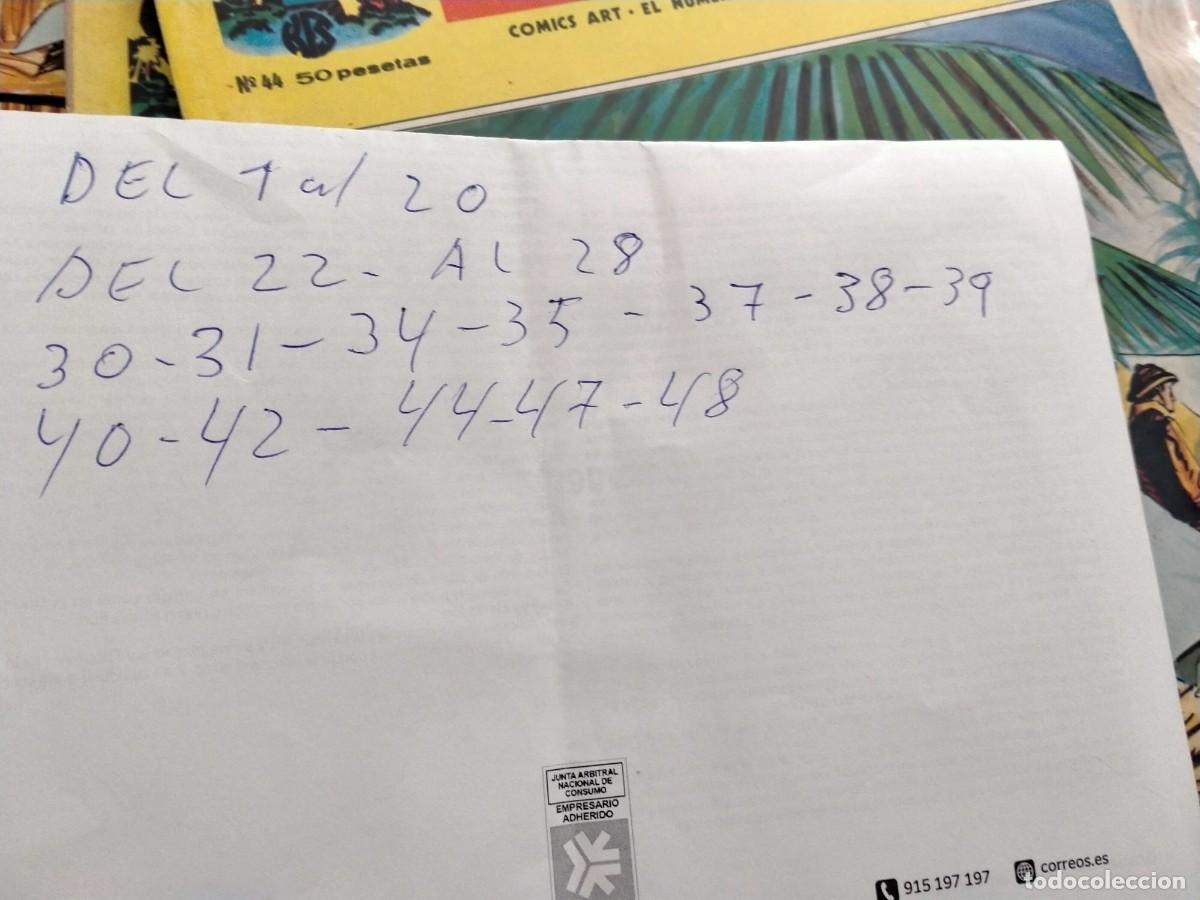 COMICS ART · EL
Nº 44 50 pesetas
DEL 1 al 20
DEL 22 - AL 28
30 - 31 - 34 - 35 - 37 - 38 - 39
40 - 42 - 44 - 47 - 48
JUNTA ARBITRAL
NACIONAL DE
CONSUMO
EMPRESARIO
ADHERIDO
915 197 197 correos.es
todocoleccion